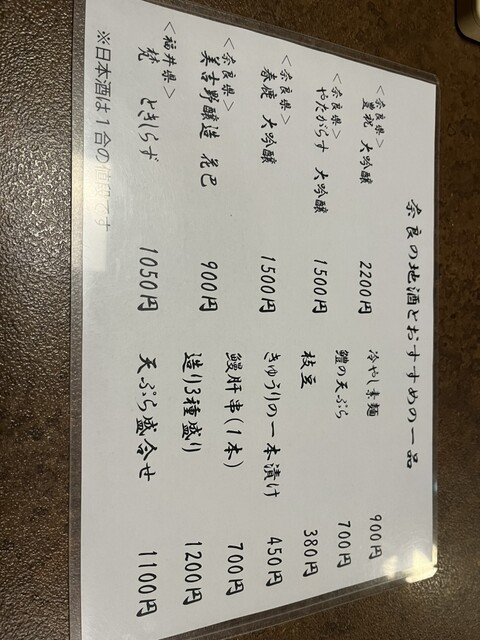 奈良の地酒とおすすめの一品
<奈良県>
豊祝 大吟醸 2200円
<奈良県>
やたがらす 大吟醸 1500円
<奈良県>
春鹿 大吟醸 1500円
<奈良県>
美吉野醸造 花巴 900円
<福井県>
梵 ときしらず 1050円
※日本酒は1合の値段です
冷やし素麺 900円
鱧の天ぷら 700円
枝豆 380円
きゅうりの一本漬け 450円
鰻肝串(1本) 700円
造り3種盛り 1200円
天ぷら盛合せ 1100円